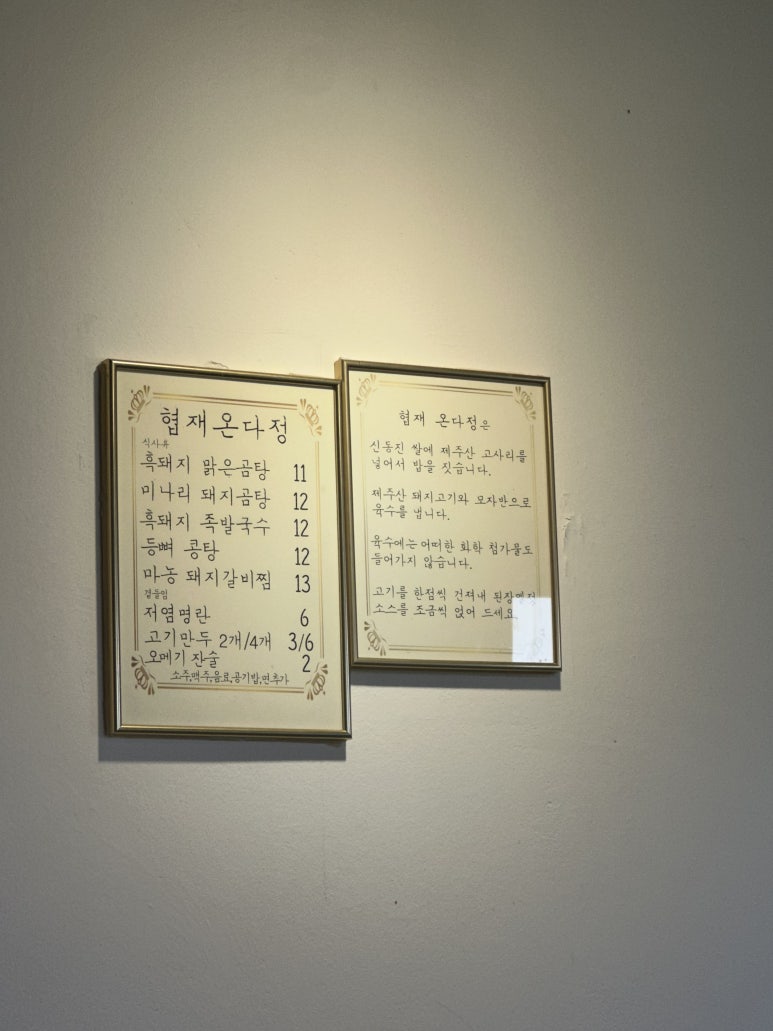 협재온다정
식사류
흑돼지 맑은곰탕 11
미나리 돼지곰탕 12
흑돼지 족발국수 12
등뼈 콩탕 12
마농 돼지갈비찜 13
곁들임
저염명란 6
고기만두 2개/4개 3/6
오메기 잔술 2
소주,맥주,음료,공기밥,면추가
협재 온다정은
신동진 쌀에 제주산 고사리를
넣어서 밥을 짓습니다.
제주산 돼지고기와 모자반으로
육수를 냅니다.
육수에는 어떠한 화학 첨가물도
들어가지 않습니다.
고기를 한점씩 건져내
소스를 조금씩 얹어 드세요